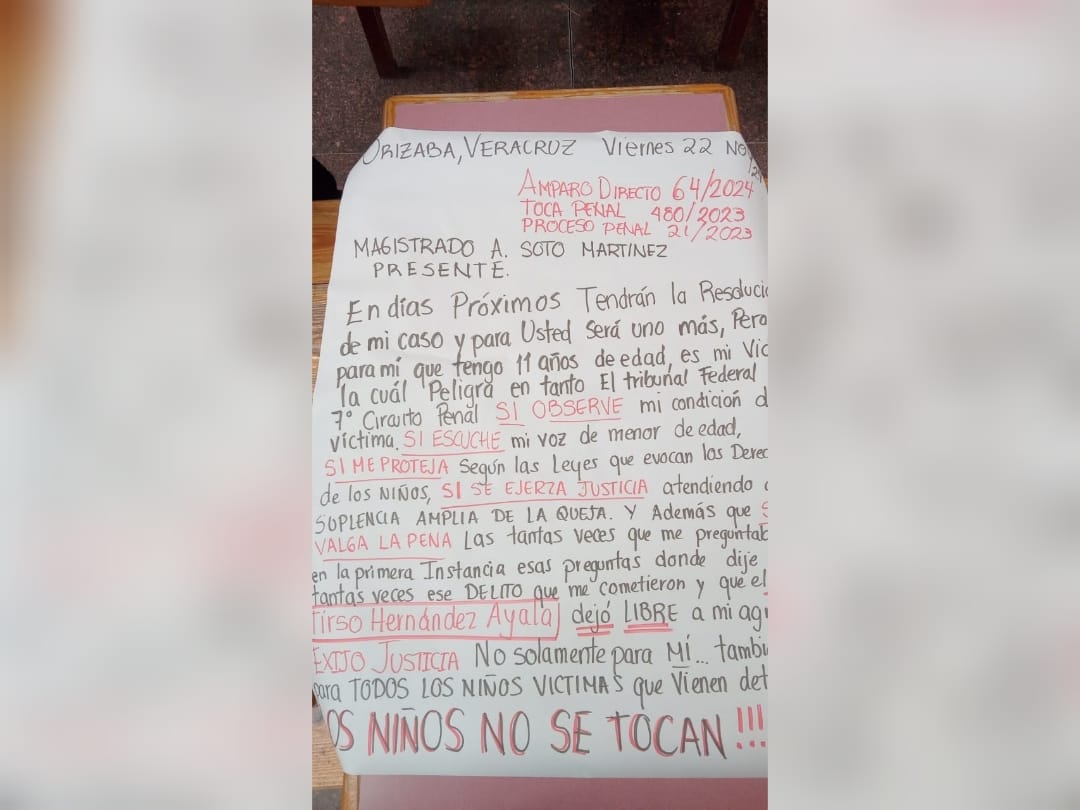 ORIZABA, VERACRUZ Viernes 22 No
AMPARO DIRECTO 64/2024
TOCA PENAL 480/2023
PROCESO PENAL 21/2023
MAGISTRADO A. SOTO MARTINEZ
PRESENTE.
En días Próximos Tendrán la Resoluci
de mi caso y para Usted Será uno más, Pero
para mí que tengo 11 años de edad, es mi Vid
la cuál Peligra en tanto El tribunal Federal
7° Circuito Penal SI OBSERVE mi condición d
víctima. SI ESCUCHE mi voz de menor de edad,
SI ME PROTEJA Según las Leyes que evocan los Derec
de los NIÑOS, SI SE EJERZA JUSTICIA atendiendo a
SUPLENCIA AMPLIA DE LA QUEJA. Y Además que S
VALGA LA PENA Las tantas veces que me preguntab
en la primera Instancia esas preguntas donde dije
tantas veces ese DELITO que me cometieron y que el
Tirso Hernández Ayala dejó LIBRE a mi agr
EXIJO JUSTICIA No solamente para MÍ... tambi
para TODOS LOS NIÑOS VICTIMAS que Vienen det
OS NIÑOS NO SE TOCAN !!!